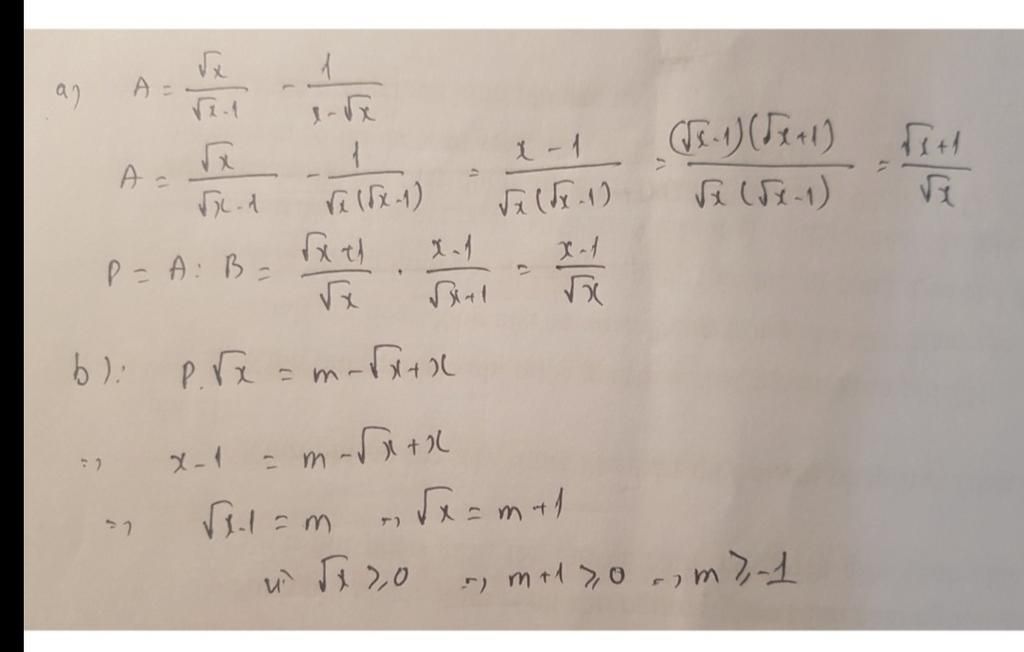 a) A = √x/(√x-1) - 1/(x-√x)
A = √x/(√x-1) - 1/(√x(√x-1)) = (x-1)/(√x(√x-1)) = (√x-1)(√x+1)/(√x(√x-1)) = (√x+1)/√x
P = A : B = (√x+1)/√x . (x-1)/(√x+1) = (x-1)/√x
b): P.√x = m-√x+x
=> x-1 = m-√x+x
=> √x-1 = m => √x = m+1
vì √x ≥ 0 => m+1 ≥ 0 => m ≥ -1